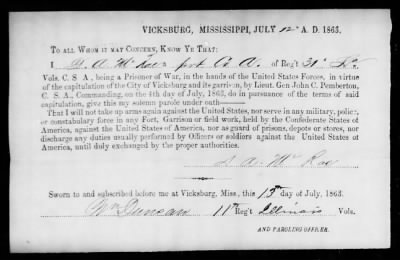 VICKSBURG, MISSISSIPPI, JULY 12" A. D. 1863.
TO ALL WHOM IT MAY CONCERN, KNOW YE THAT:
I S. A. McRae pvt Co A. of Reg't 31" La
Vols. C. S. A., being a Prisoner of War, in the hands of the United States Forces, in virtue
of the capitulation of the City of Vicksburg and its garrison, by Lieut. Gen John C. Pemberton,
C. S. A., Commanding, on the 4th day of July, 1863, do in pursuance of the terms of said
capitulation, give this my solemn parole under oath——
That I will not take up arms again against the United States, nor serve in any military, police,
or constabulary force in any Fort, Garrison or field work, held by the Confederate States of
America, against the United States of America, nor as guard of prisons, depots or stores, nor
discharge any duties usually performed by Officers or soldiers against the United States of
America, until duly exchanged by the proper authorities.
S A McRae
Sworn to and subscribed before me at Vicksburg, Miss., this 13th day of July, 1863.
Wm Duncan 11th Reg't Illinois Vols.
AND PAROLING OFFICER.